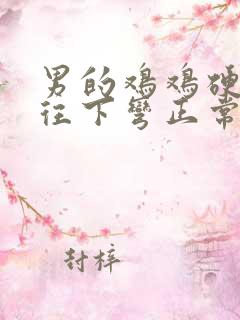 男的鸡鸡硬
往下弯正常
封梓